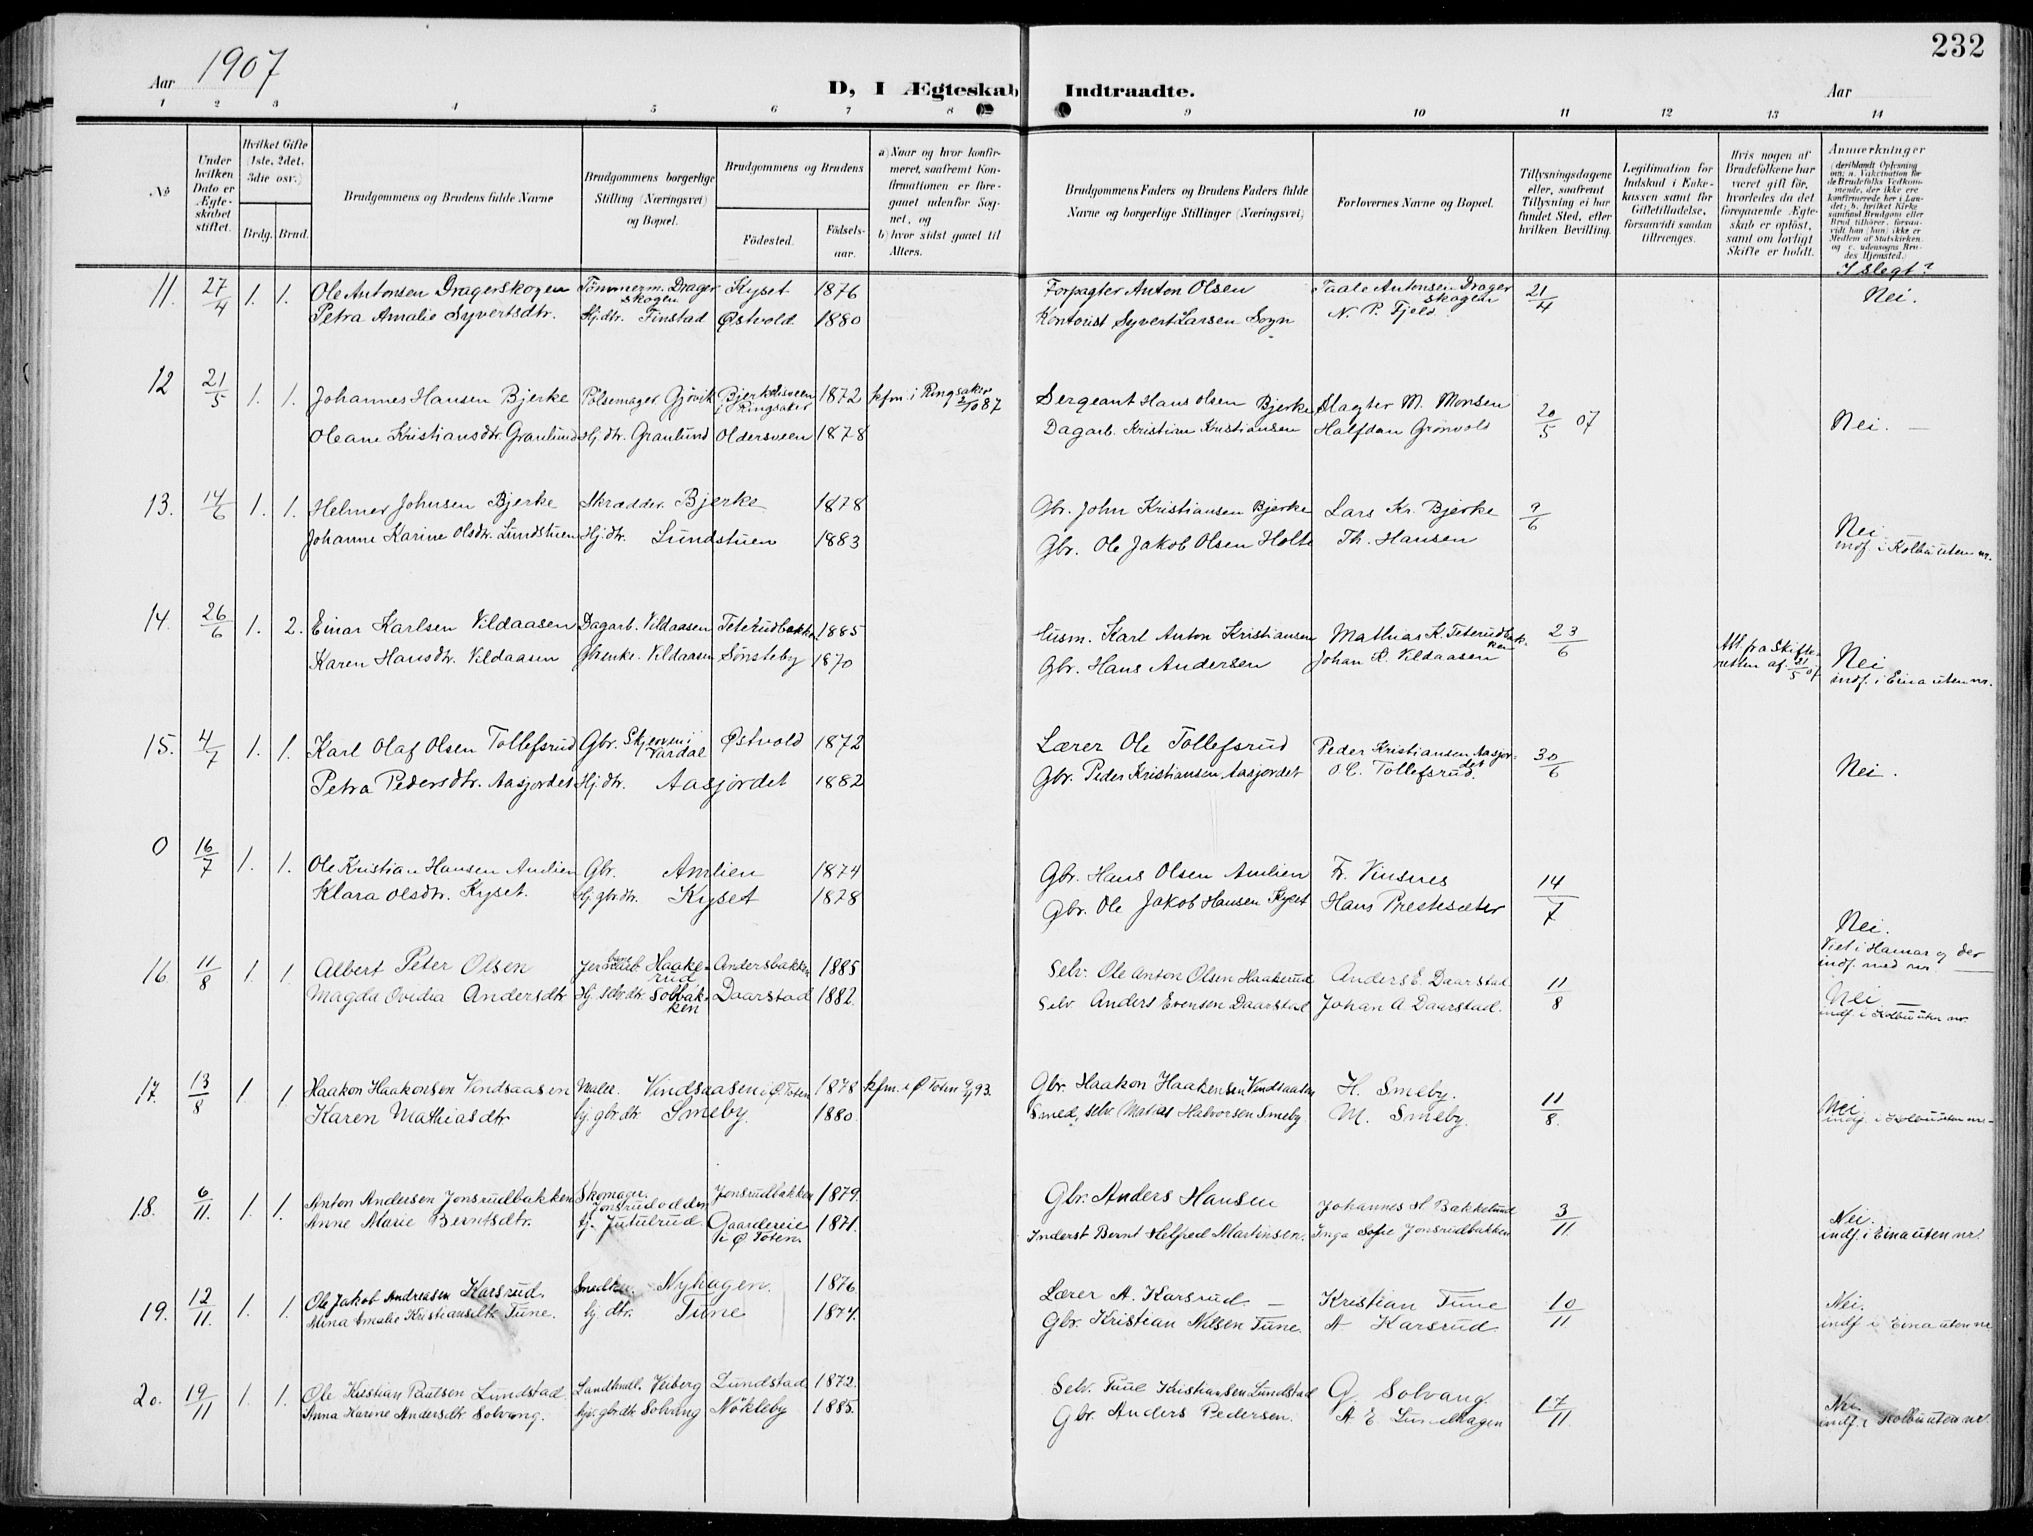 232
Aar 1907
D, I Ægteskab Indtraadte.
Aar
1 2 3 4 5 6 7 8 9 10 11 12 13 14
No
Under hvilken Dato er Ægteskabet stiftet.
Hvilket Gifte (1ste, 2det, 3die osv.)
Brdg. Brud.
Brudgommens og Brudens fulde Navne
Brudgommens borgerlige Stilling (Næringsvei) og Bopæl.
Brudgommens og Brudens
Födested. Födsels-aar.
a) Naar og hvor konfirmeret, saafremt Konfirmationen er foregaaet udenfor Sognet, og
b) hvor sidst gaaet til Alters.
Brudgommens Faders og Brudens Faders fulde Navne og borgerlige Stillinger (Næringsvei)
Forlovernes Navne og Bopæl.
Tillysningsdagene eller, saafremt Tillysning ei har fundet Sted, efter hvilken Bevilling.
Legitimation for Indskud i Enkekassen samt for Giftetilladelse, forsaavidt saadan tiltrænges.
Hvis nogen af Brudefolkene har været gift før, hvorledes da det foregaaende Ægteskab er opløst, samt om lovligt Skifte er holdt.
Anmærkninger
(deriblandt Oplysning om: a. Vakcination for de Brudefolks Vedkommende, der ikke ere konfirmerede her i Landet; b. hvilket Kirkesamfund Brudgom eller Brud tilhører, forsaavidt han (hun) ikke er Medlem af Statskirken og c. udensogns Brudes Hjemsted.)
I slegt?
11. 27/4 1. 1. Ole Antonsen Dragerskogen Tömmerm. Drager skogen Kyset 1876 Forpagter Anton Olsen Taale Antonsen Drager skogen 21/4 Nei.
Petra Amalie Syvertsdtr. Hj.dtr. Finstad Østvold 1880 Kontorist Syvert Larsen Sogn N. P. Fjeld
12 21/5 1. 1. Johannes Hansen Bjerke Pölsemager Gjövik i Ringsaker 1872 kfm. i Ringsaker 2/10 87 Sergeant Hans Olsen Bjerke Slagter M. Monsen 20/5 07 Nei. —
Oleane Kristiansdtr. Granlund Hj. dtr. Granlund Oldersveen 1878 Dagarb. Kristian Kristiansen Halfdan Grönvold
13. 14/6 1. 1. Helmer Johnsen Bjerke Skrædder. Bjerke 1878 Gbr. John Kristiansen Bjerke Lars Kr. Bjerke 9/6
Johanne Karine Olsdtr. Lundstuen Hj.dtr. Lundstuen 1883 Gbr. Ole Jakob Olsen Holte Th. Hansen Nei
indf. i Kolbu uten nr.
14. 26/6 1. 2. Einar Karlsen Vildaasen Dagarb. Vildaasen Teterudbakken 1885 Husm. Karl Anton Kristiansen Mathias K. Teterudbakken 23/6 Att. fra Skifteretten af 21/5 07 Nei
Karen Hansdtr. Vildaasen Gbrenke. Vildaasen Sönsteby 1870 Gbr. Hans Andersen Johan K. Vildaasen indf. i Eina uten nr.
15. 4/7 1. 1. Karl Olaf Olsen Tollefsrud Gbr. Skjerven i Vardal Østvold 1872 Lærer Ole Tollefsrud Peder Kristiansen Aasjordet 30/6
Petra Pedersdtr. Aasjordet Hj.dtr. Aasjordet 1882 Gbr. Peder Kristiansen Aasjordet O. C. Tollefsrud. Nei.
0 16/7 1. 1. Ole Kristian Hansen Amlien Gbr. Amlien 1874 Gbr. Hans Olsen Amlien Fr. Vinsnes 14/7
Klara Olsdtr. Kyset. Hj. gbr.dtr. Kyset 1878 Gbr. Ole Jakob Hansen Kyset Hans Prestesæter Nei.
Viet i Hamar og der indf. med nr —
16 11/8 1. 1. Albert Peter Olsen Haakerud Andersbakken 1885 Selv. Ole Anton Olsen Haakerud Anders E. Daarstad 11/8 Nei —
Magda Ovidia Andersdtr Hj. selv.dtr. Solbakken Daarstad 1882. Selv Anders Evensen Daarstad Johan A Daarstad. indf. i Kolbu uten nr.
17. 13/8 1 1 Haakon Haakonsen Vindsaasen Maler. Vindsaasen i Ø. Toten 1878 kfm. i Ø Toten 93. Gbr. Haakon Haakensen Vindsaasen H. Smeby. 11/8. Nei
Karen Mathiasdtr hj. gbr dtr Smeby. 1880. Smed, selv. Matias Halvorsen Smeby M. Smeby. indf. i Kolbu uten nr.
18. 6/11. 1. 1. Anton Andersen Jonsrudbakken Skomager. Jonsrudodden Jonsrudbakken 1879. Gbr. Anders Hansen Johannes H. Bakkelund 3/11. Nei.
Anne Marie Berntsdtr. hj. Jutulrud. Gaardereie i Ø Toten. 1871. Inderst Bernt Helfred Martinsen. Inga Sofie Jonsrudbakken indf. i Eina uten nr.
19. 12/11. 1. 1. Ole Jakob Andreasen Karsrud. Nyhagen. 1876 Lærer A. Karsrud — Kristian Tune 10/11 Nei.
Mina Emalie Tune. hj dtr. Tune 1874. Gbr. Kristian Nilsen Tune. A Karsrud indf i Eina uten nr
20. 19/11 1. 1. Ole Kristian Paulsen Lundstad Landhdl. Veiberg Lundstad 1872. Selv. Kristiansen Lundstad G. Solvang. 17/11. Nei.
Anna Karine Andersdtr Solvang. hj. gbr.dtr Solvang Nökleby 1885. Gbr. Anders Pedersen. A E Lundhagen indf. i Kolbu uten nr